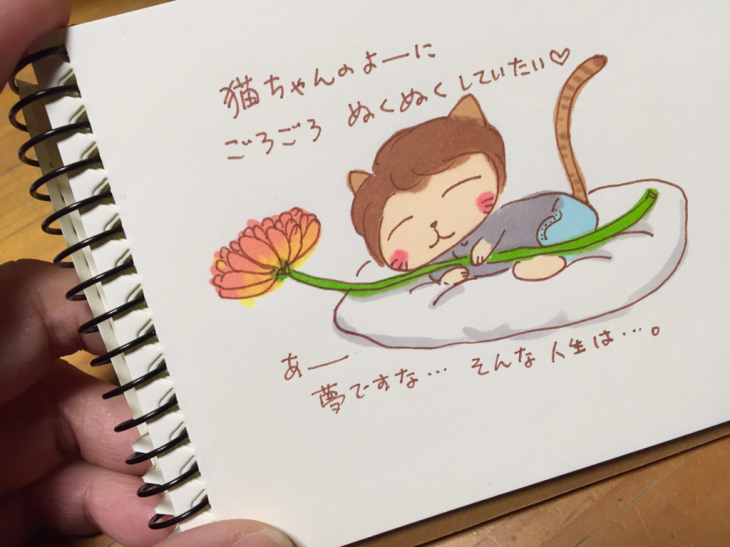 猫ちゃんのよーに
ごろごろ ぬくぬくしていたい♡
あー
夢ですな… そんな人生は…。